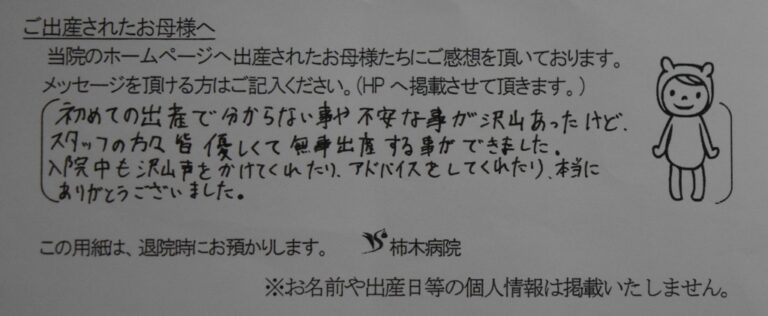 ご出産されたお母様へ
当院のホームページへ出産されたお母様たちにご感想を頂いております。
メッセージを頂ける方はご記入ください。(HPへ掲載させて頂きます。)
初めての出産で分からない事や不安な事が沢山あったけど、
スタッフの方々皆優しくて無事出産する事ができました。
入院中も沢山声をかけてくれたり、アドバイスをしてくれたり、本当に
ありがとうございました。
この用紙は、退院時にお預かりします。 柿木病院
※お名前や出産日等の個人情報は掲載いたしません。